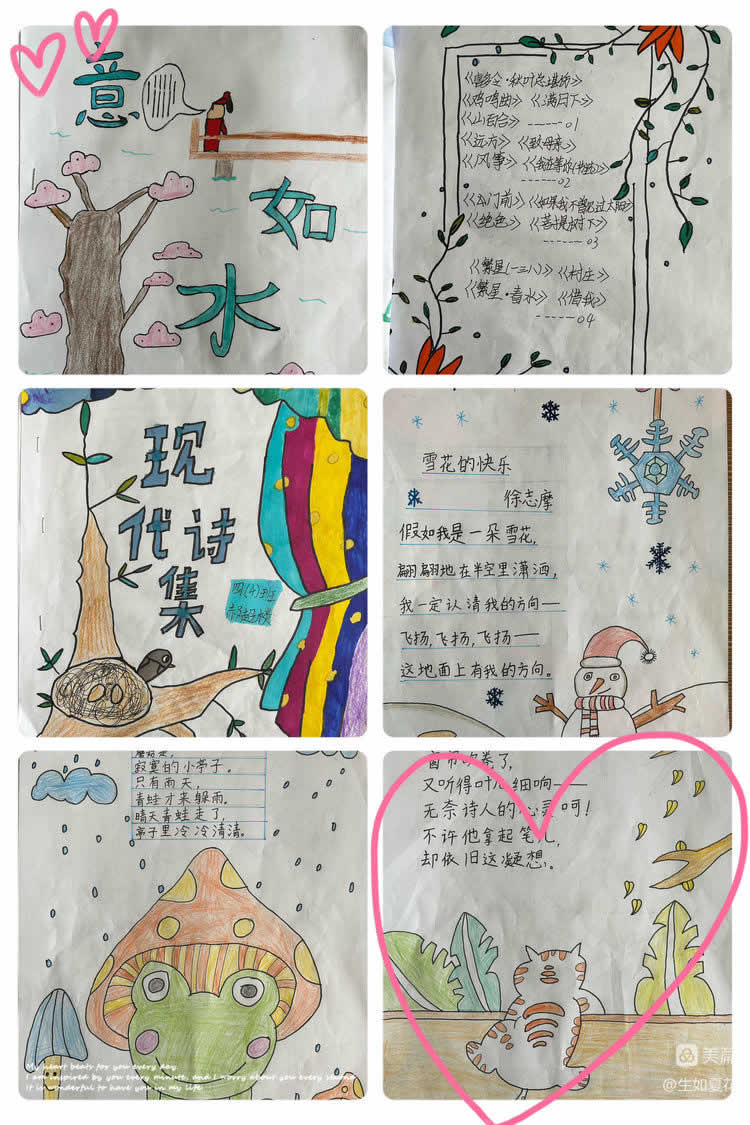 意
如
水
《喜多令·秋叶总堪拆》
《鸡鸣曲》《满月下》
《山台台》
01
《远方》《致母亲》
《风筝》
02
《绝色》《菩提树下》
03
《繁星(一三八)》《村庄》
《繁星·春水》《借我》
04
现
代诗
集
四(4)班
雪花的快乐
徐志摩
假如我是一朵雪花,
翩翩地在半空里潇洒,
我一定认清我的方向——
飞扬,飞扬,飞扬——
这地面上有我的方向。
寂寞的小亭子。
只有雨天,
青蛙才来躲雨。
晴天青蛙走了,
亭子里冷冷清清。
又听得叶儿细响——
无奈诗人的心灵呵!
不许他拿起笔儿,
却依旧这凝想。
My heart beats for you every day
I am inspired by you every minute, and I worry about you every
It is wonderful to have you in my life
美篇
@生如夏花